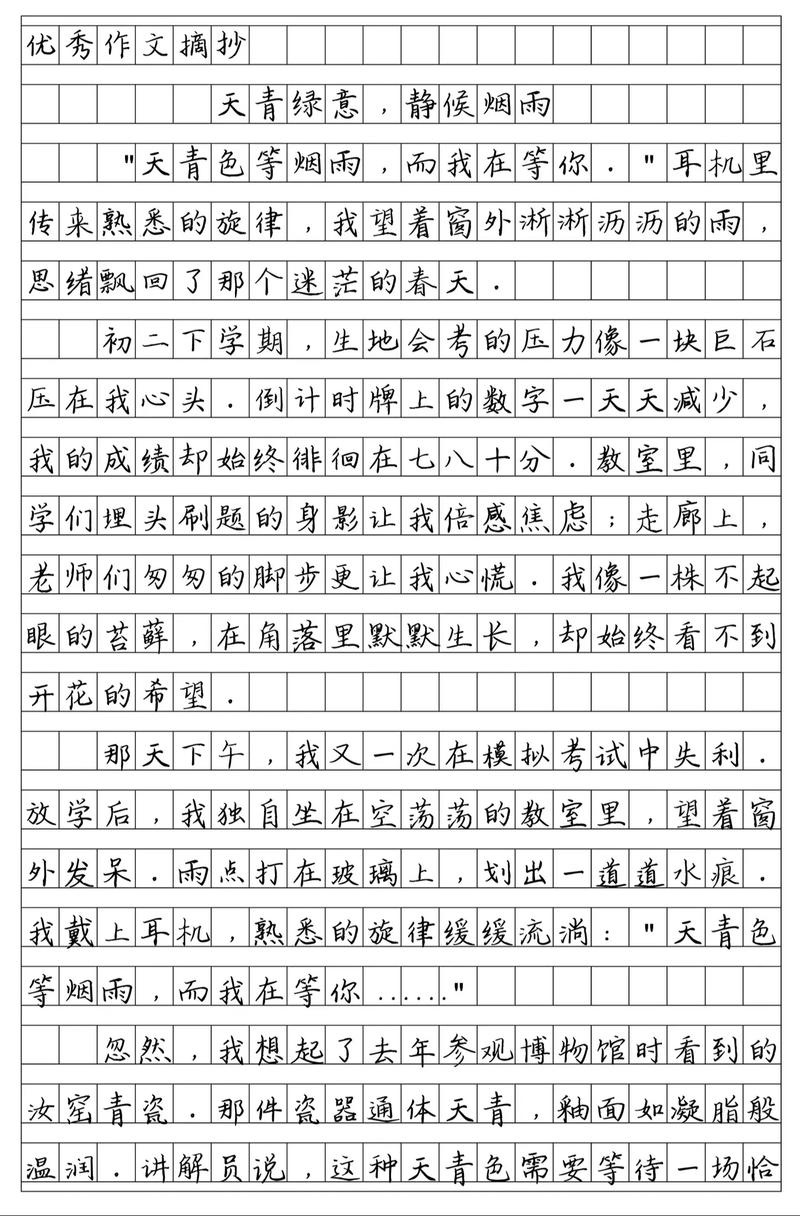 优秀作文摘抄
天青绿意，静候烟雨
"天青色等烟雨，而我在等你．"耳机里
传来熟悉的旋律，我望着窗外淅淅沥沥的雨，
思绪飘回了那个迷茫的春天．
初二下学期，生地会考的压力像一块巨石
压在我心头．倒计时牌上的数字一天天减少，
我的成绩却始终徘徊在七八十分．教室里，同
学们埋头刷题的身影让我倍感焦虑；走廊上，
老师们匆匆的脚步更让我心慌．我像一株不起
眼的苔藓，在角落里默默生长，却始终看不到
开花的希望．
那天下午，我又一次在模拟考试中失利．
放学后，我独自坐在空荡荡的教室里，望着窗
外发呆．雨点打在玻璃上，划出一道道水痕．
我戴上耳机，熟悉的旋律缓缓流淌："天青色
等烟雨，而我在等你……"
忽然，我想起了去年参观博物馆时看到的
汝窑青瓷．那件瓷器通体天青，釉面如凝脂般
温润．讲解员说，这种天青色需要等待一场恰